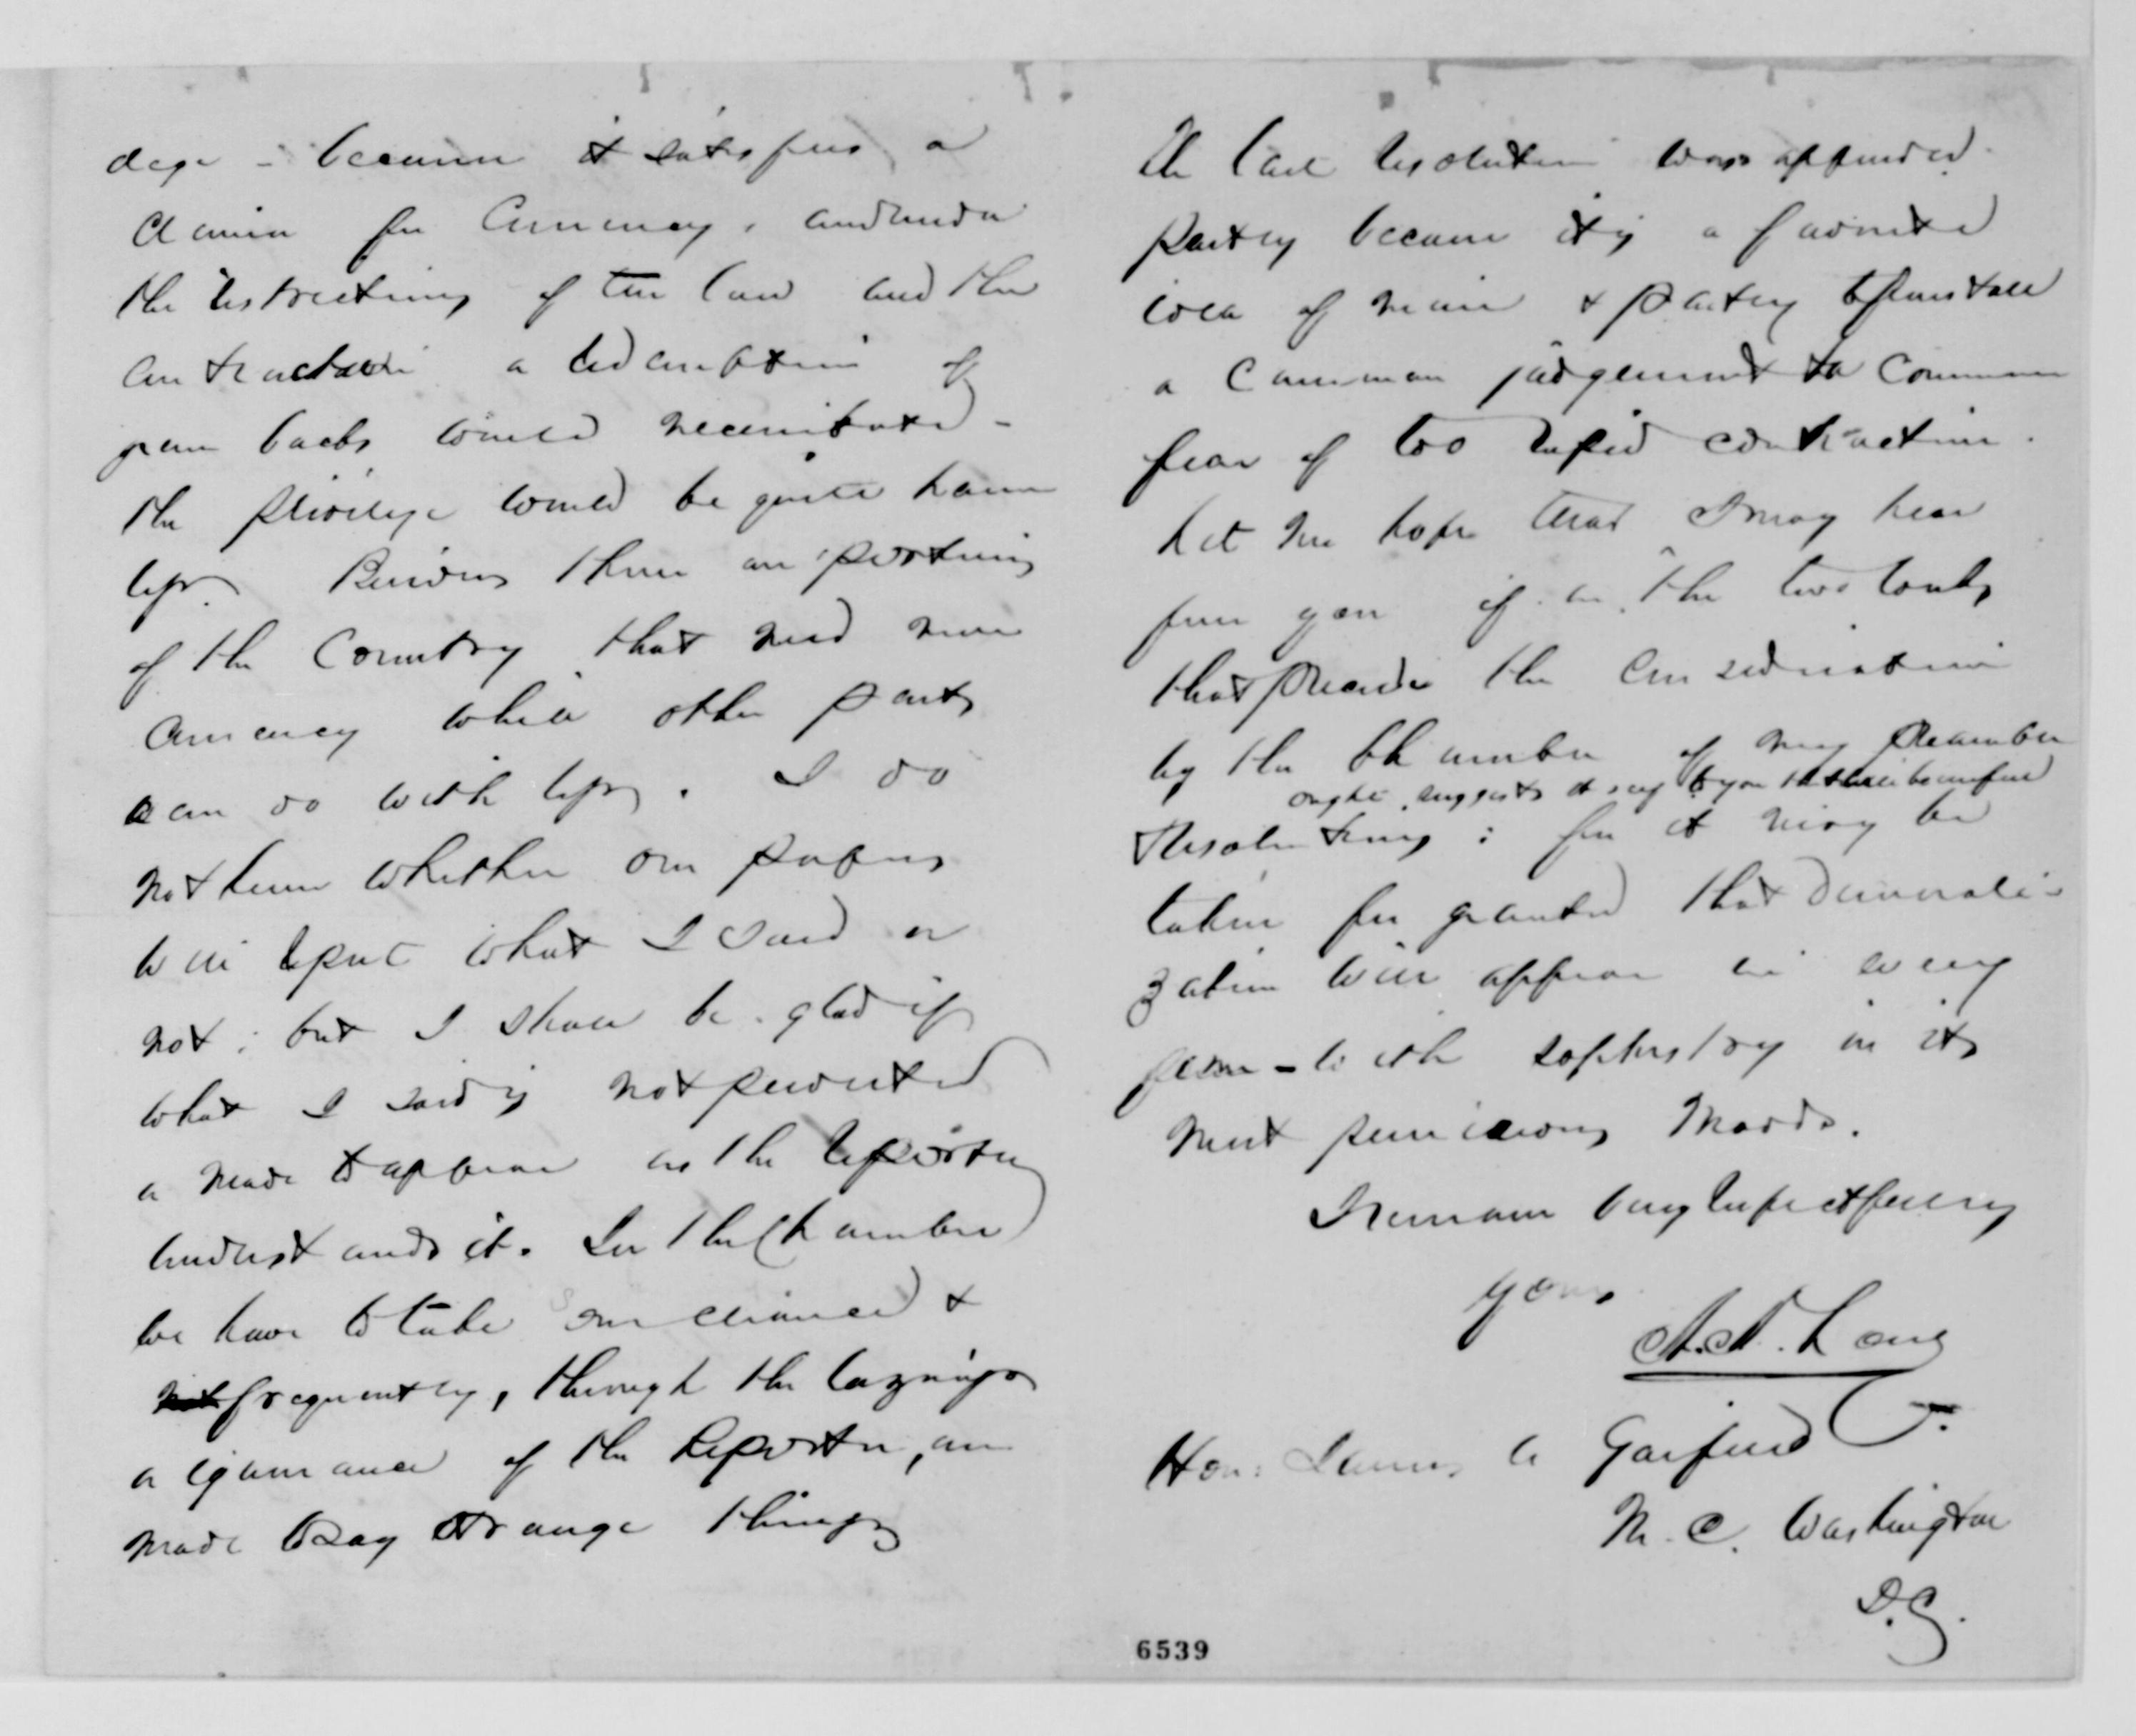 dege - because it satisfies a
clamor for Currency, and under
the restrictions of the law and the
contraction a redemption of
green backs would necessitate -
the privilege would be quite harm
less. Besides there are portions
of the Country that need more
Currency while other parts
can do with less. I do
not know whether our papers
will report what I said or
not; but I shall be glad if
what I said is not perverted
or made to appear as the reporter
understands it. In the Chamber
we have to take our chances &
not frequently, through the laziness
or ignorance of the Reporter, are
made to say strange things
The last resolution was appended
partly because it is a favorite
idea of mine & partly to forestall
a Common judgement & a Common
fear of too rapid contraction.
Let me hope that I may hear
from you if in the two weeks
that precede the consideration
by the Chamber of my Preamble
ought suggests itself to you that
Resolutions; for it may be
taken for granted that Demorali-
zation will appear in every
form - with sophistry in its
most pernicious moods.
I remain very respectfully
yours
Hon: James A Garfield
M. C. Washington
D.C.
6539